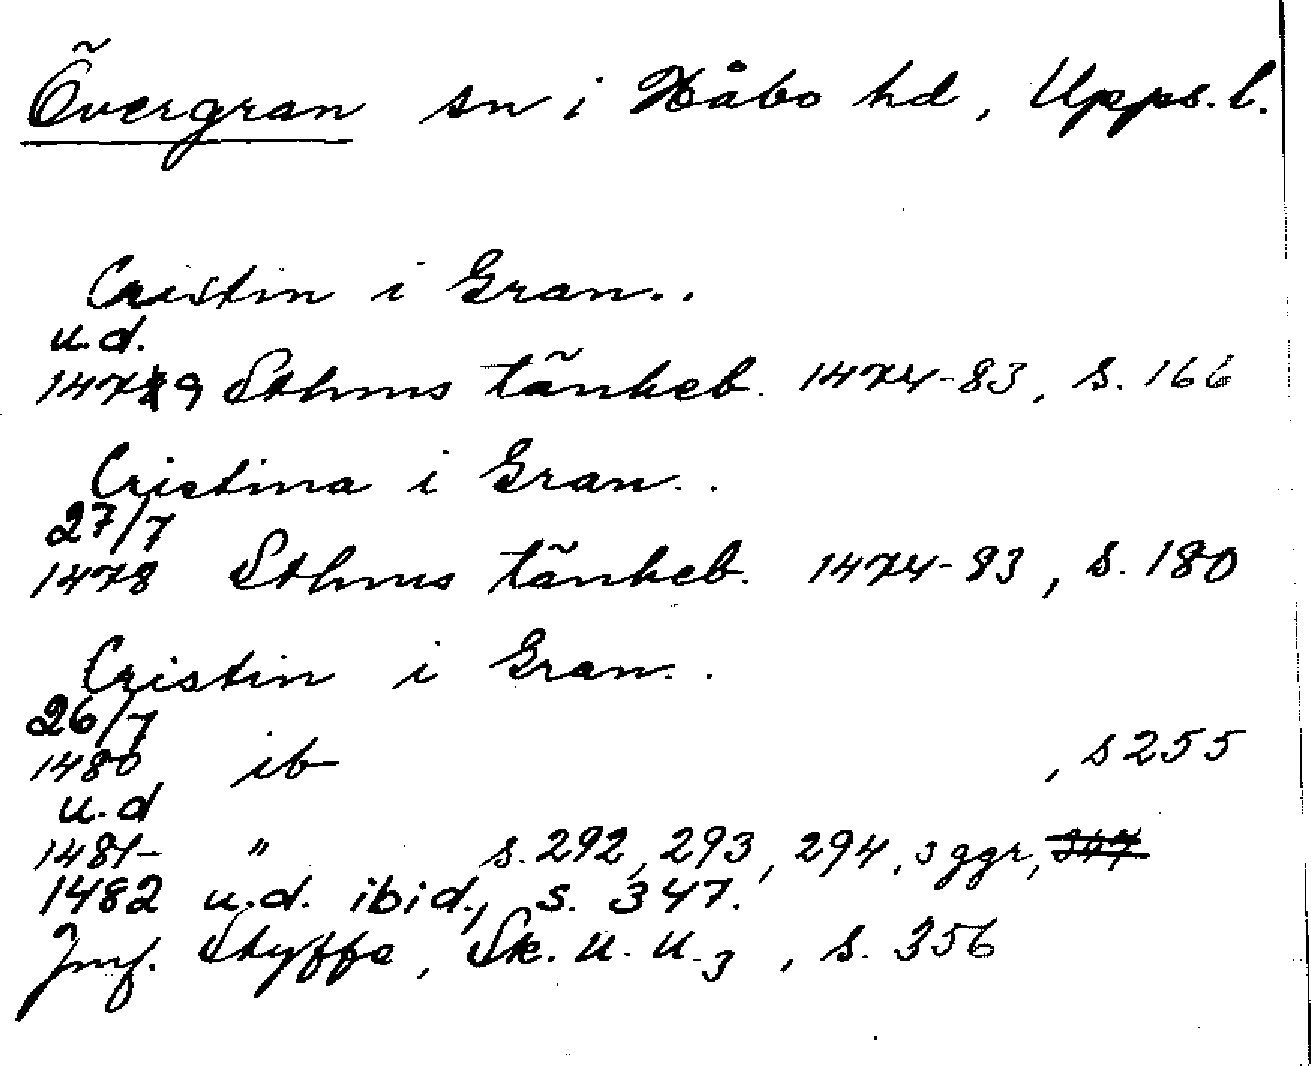 Övergran sn i Håbo hd, Upps. l.
Cristin i Gran..
u.d.
1479 Sthms tänkeb. 1474-83, s. 166
Cristina i Gran..
27/7
1478 Sthms tänkeb. 1474-83, s. 180
Cristin i Gran..
26/7
1480 ib , s 255
u.d
1481- " s. 292, 293, 294, 3 ggr, 347
1482 u.d. ibid., s. 347.
Jmf. Styffe, Sk. u. u. 3, s. 356